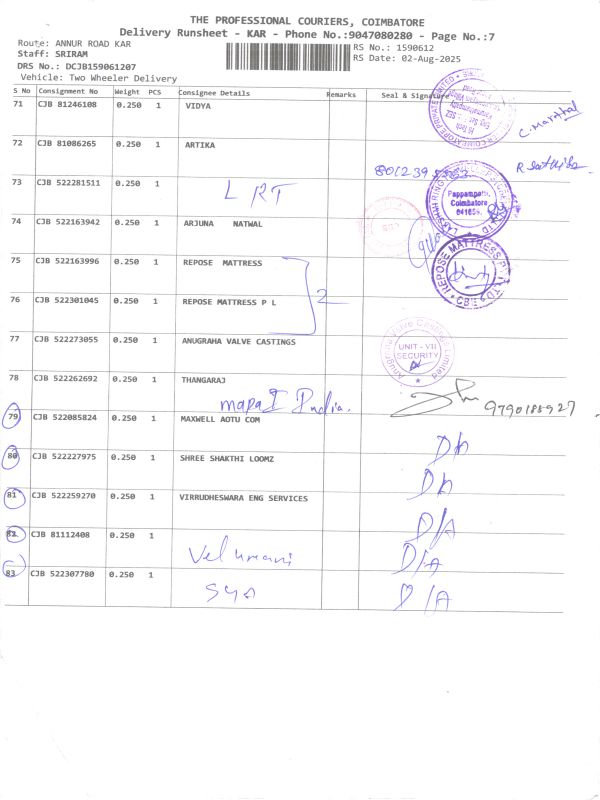 THE PROFESSIONAL COURIERS, COIMBATORE
Delivery Runsheet - KAR - Phone No.:9047080280 - Page No.:7
Route: ANNUR ROAD KAR
RS No.: 1590612
Staff: SRIRAM
RS Date: 02-Aug-2025
DRS No.: DCJB159061207
Vehicle: Two Wheeler Delivery
S No Consignment No Weight PCS Consignee Details Remarks Seal & Signature
71 CJB 81246108 0.250 1 VIDYA
72 CJB 81086265 0.250 1 ARTIKA
73 CJB 522281511 0.250 1 LRT
Pappampatti,
Coimbatore
74 CJB 522163942 0.250 1 ARJUNA NATWAL
75 CJB 522163996 0.250 1 REPOSE MATTRESS
2
REPOSE MATTRESS
CBE
76 CJB 522301045 0.250 1 REPOSE MATTRESS P L
77 CJB 522273055 0.250 1 ANUGRAHA VALVE CASTINGS
UNIT - VII
SECURITY
78 CJB 522262692 0.250 1 THANGARAJ
9790185927
79 CJB 522085824 0.250 1 MAXWELL AOTU COM
80 CJB 522227975 0.250 1 SHREE SHAKTHI LOOMZ
81 CJB 522259270 0.250 1 VIRRUDHESWARA ENG SERVICES D/A
82 CJB 81112408 0.250 1 Velumani D/A
83 CJB 522307780 0.250 1 D/A